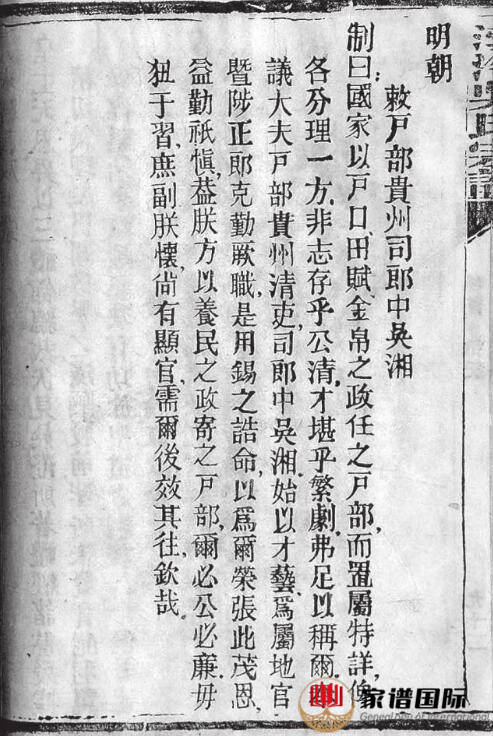 明朝
敕戸部貴州司郎中吳湘
制曰國家以戸口田賦金帛之政任之戸部而置屬特詳俾
各分理一方非志存乎公清才堪乎繁劇弗足以稱爾
議大夫戸部貴州清吏司郎中吳湘始以才藝爲屬地官
暨陟正郎克勤厥職是用錫之誥命以爲爾榮張此茂恩
益勤祇愼葢朕方以養民之政寄之戸部爾必公必亷毋
狃于習庶副朕懷尙有顯官需爾後效其往欽哉
家谱国际
Genealogy of International